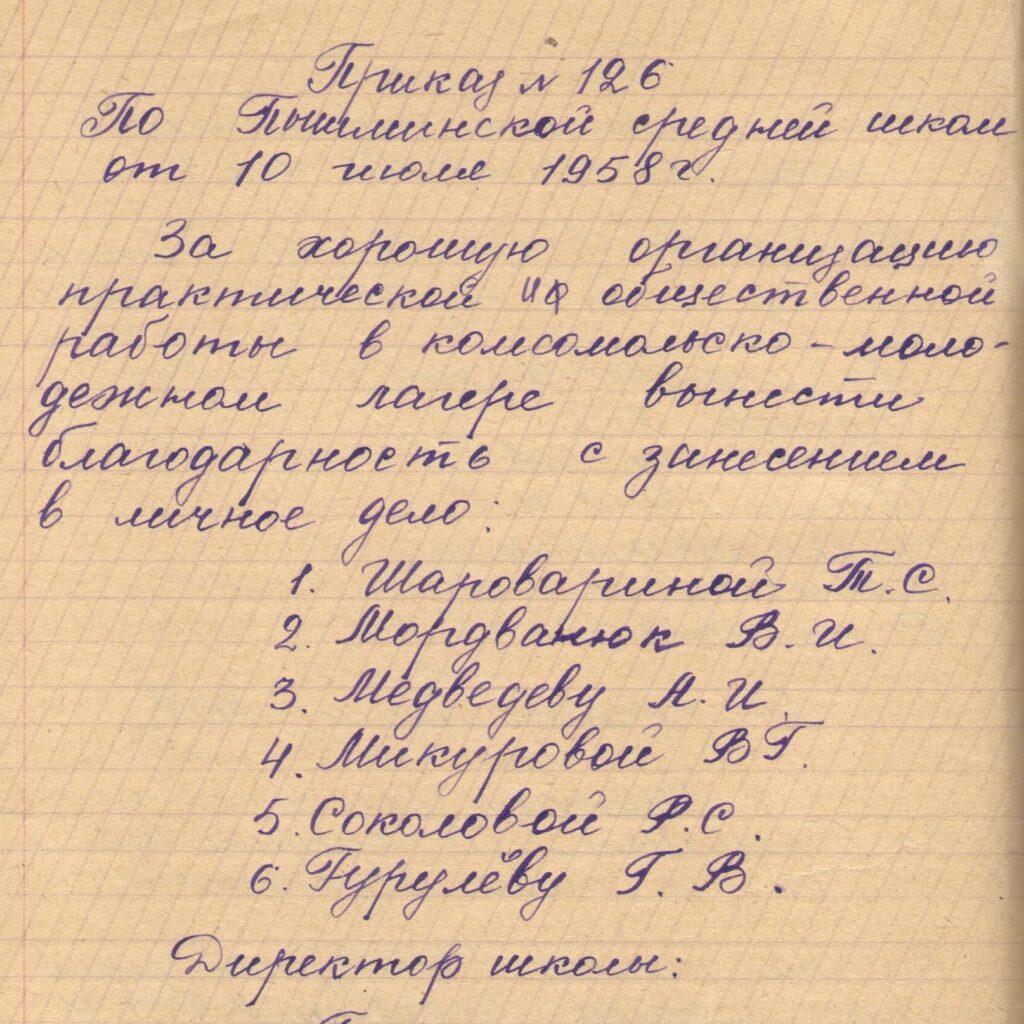 Приказ № 126
По Пышминской средней школ
от 10 июля 1958 г.
За хорошую организацию
практической и общественной
работы в комсомольско-моло-
дежном лагере вынести
благодарность с занесением
в личное дело:
1. Шаровариной Т.С.
2. Мордванюк В.И.
3. Медведеву А.И.
4. Микуровой В.Г.
5. Соколовой Р.С.
6. Гурулёву Г.В.
Директор школы: